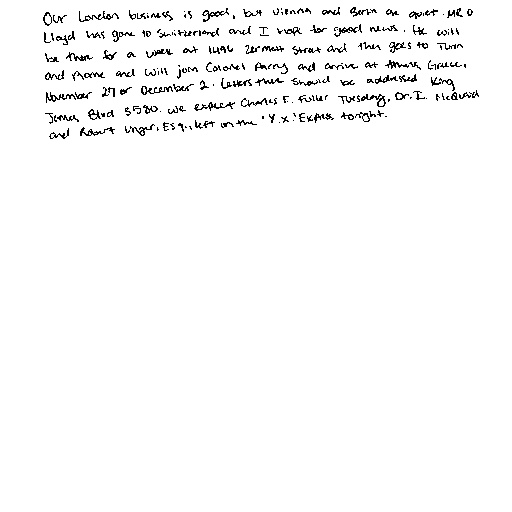 Our London business is good, but Vienna and Berlin are quiet. MR D
Lloyd has gone to Switzerland and I hope for good news. He will
be there for a week at 1496 Zermott Street and then goes to Turin
and Rome and will join Colonel Parry and arrive at Athens, Greece,
November 27 or December 2. Letters there should be addressed King
James Blvd 3580. We expect Charles E. Fuller Tuesday, Dr. L. McQuaid
and Robert Unger, Esq., left on the 'Y.X.' Express tonight.